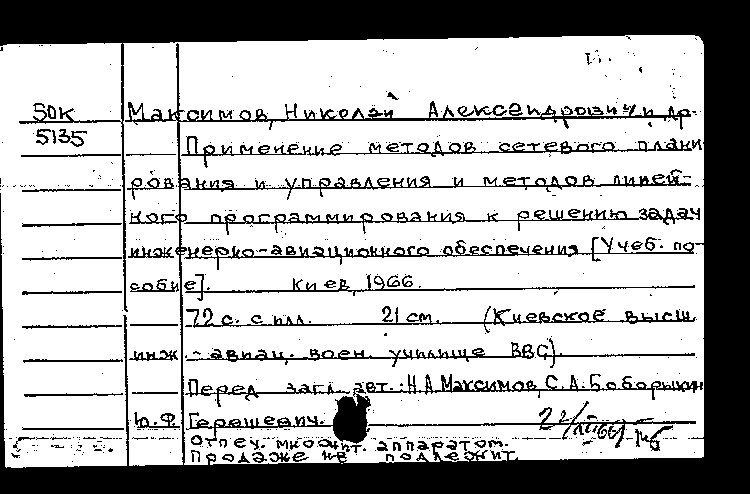 50К Максимов, Николай Александрович и др.
5135 Применение методов сетевого плани
рования и управления и методов линей-
ного программирования к решению задач
инженерно-авиационного обеспечения [Учеб. по-
собие]. Киев, 1966.
72 с. с илл. 21 см. (Киевское высш.
инж.-авиац. воен. училище ВВС).
Перед загл. авт.: Н.А.Максимов, С.А.Боборыкин
Ю.Ф. Герашевич.
Отпеч. множит. аппаратом.
Продаже не подлежит